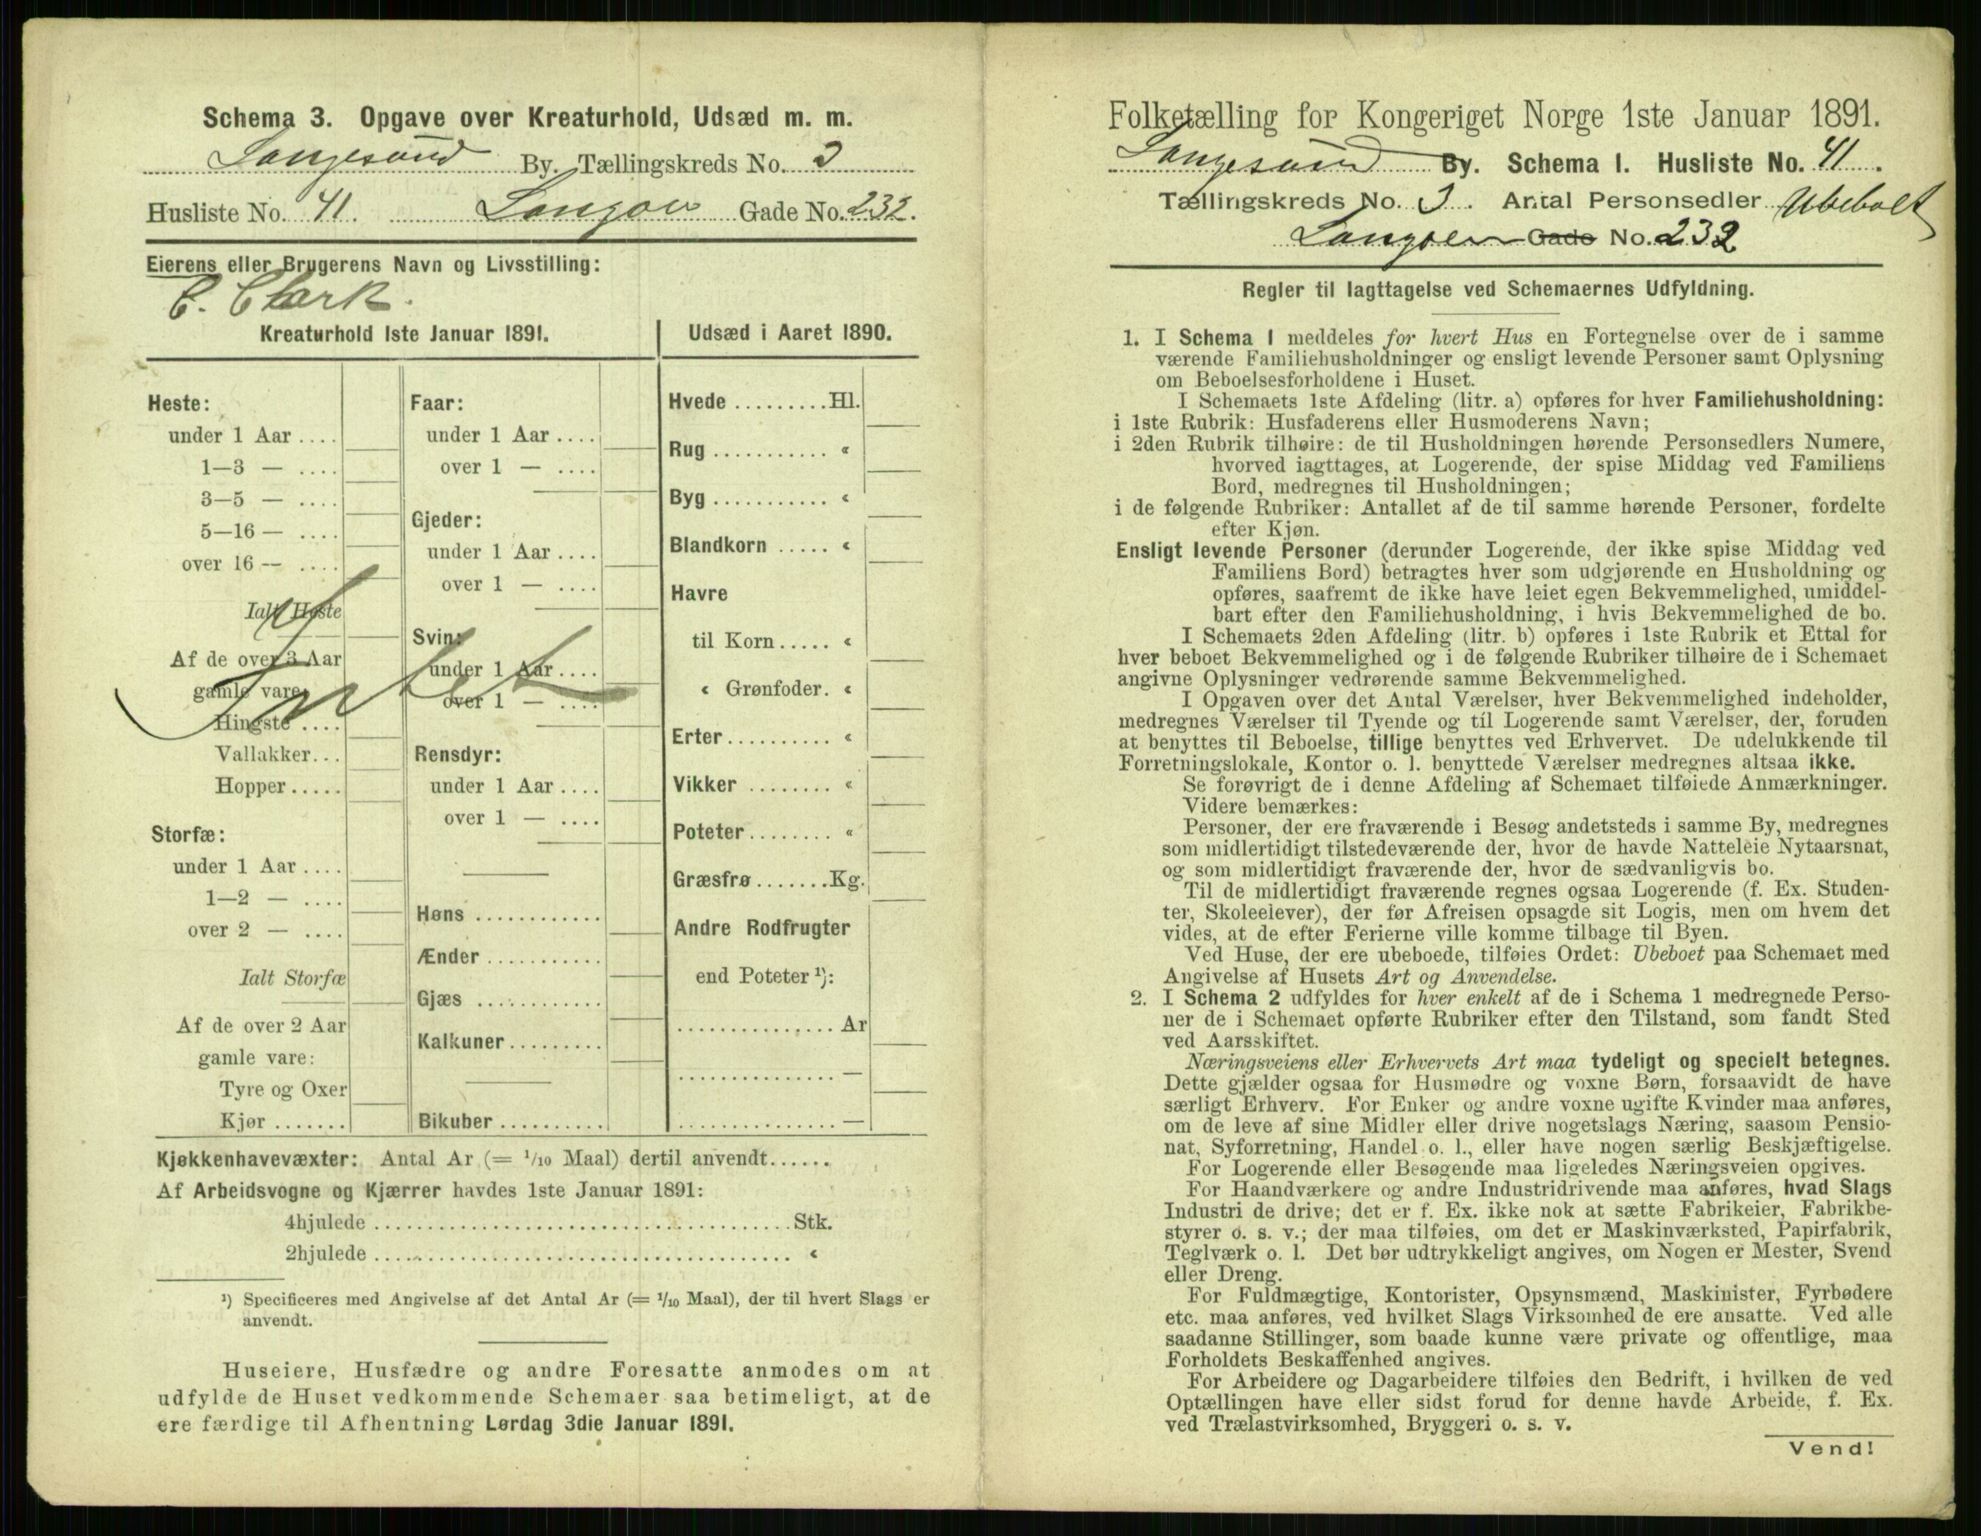 Schema 3. Opgave over Kreaturhold, Udsæd m. m.
Langesund By. Tællingskreds No. 3
Husliste No. 41. Langøen Gade No. 232.
Eierens eller Brugerens Navn og Livsstilling:
C. Clark.
Kreaturhold 1ste Januar 1891.
Heste:
under 1 Aar ....
1—3 — ....
3—5 — ....
5—16 — ....
over 16 — ....
Ialt Heste
Af de over 3 Aar
gamle vare:
Hingste ....
Vallakker...
Hopper.....
Storfæ:
under 1 Aar ....
1—2 — ....
over 2 — ....
Ialt Storfæ
Af de over 2 Aar
gamle vare:
Tyre og Oxer
Kjør .......
Faar:
under 1 Aar ....
over 1 — ....
Gjeder:
under 1 Aar ....
over 1 — ....
Svin:
under 1 Aar....
over 1 — ....
Intet
Rensdyr:
under 1 Aar ....
over 1 — ....
Høns ............
Ænder ...........
Gjæs ............
Kalkuner.........
Bikuber ..........
Udsæd i Aaret 1890.
Hvede .........Hl.
Rug ........... «
Byg ........... «
Blandkorn ..... «
Havre
til Korn..... «
« Grønfoder. «
Erter.......... «
Vikker ........ «
Poteter........ «
Græsfrø .......Kg.
Andre Rodfrugter
end Poteter ¹):
............... Ar
............... —
............... —
Kjøkkenhavevæxter: Antal Ar (= 1/10 Maal) dertil anvendt......
Af Arbeidsvogne og Kjærrer havdes 1ste Januar 1891:
4hjulede ........................................ Stk.
2hjulede ........................................ «
¹) Specificeres med Angivelse af det Antal Ar (= 1/10 Maal), der til hvert Slags er
anvendt.
Huseiere, Husfædre og andre Foresatte anmodes om at
udfylde de Huset vedkommende Schemaer saa betimeligt, at de
ere færdige til Afhentning Lørdag 3die Januar 1891.
Folketælling for Kongeriget Norge 1ste Januar 1891.
Langesund By. Schema 1. Husliste No. 41.
Tællingskreds No. 3. Antal Personsedler Ubebolt
Langøen Gade No. 232
Regler til Iagttagelse ved Schemaernes Udfyldning.
1. I Schema 1 meddeles for hvert Hus en Fortegnelse over de i samme
værende Familiehusholdninger og ensligt levende Personer samt Oplysning
om Beboelsesforholdene i Huset.
I Schemaets 1ste Afdeling (litr. a) opføres for hver Familiehusholdning:
i 1ste Rubrik: Husfaderens eller Husmoderens Navn;
i 2den Rubrik tilhøire: de til Husholdningen hørende Personsedlers Numere,
hvorved iagttages, at Logerende, der spise Middag ved Familiens
Bord, medregnes til Husholdningen;
i de følgende Rubriker: Antallet af de til samme hørende Personer, fordelte
efter Kjøn.
Ensligt levende Personer (derunder Logerende, der ikke spise Middag ved
Familiens Bord) betragtes hver som udgjørende en Husholdning og
opføres, saafremt de ikke have leiet egen Bekvemmelighed, umiddel-
bart efter den Familiehusholdning, i hvis Bekvemmelighed de bo.
I Schemaets 2den Afdeling (litr. b) opføres i 1ste Rubrik et Ettal for
hver beboet Bekvemmelighed og i de følgende Rubriker tilhøire de i Schemaet
angivne Oplysninger vedrørende samme Bekvemmelighed.
I Opgaven over det Antal Værelser, hver Bekvemmelighed indeholder,
medregnes Værelser til Tyende og til Logerende samt Værelser, der, foruden
at benyttes til Beboelse, tillige benyttes ved Erhvervet. De udelukkende til
Forretningslokale, Kontor o. l. benyttede Værelser medregnes altsaa ikke.
Se forøvrigt de i denne Afdeling af Schemaet tilføiede Anmærkninger.
Videre bemærkes:
Personer, der ere fraværende i Besøg andetsteds i samme By, medregnes
som midlertidigt tilstedeværende der, hvor de havde Natteleie Nytaarsnat,
og som midlertidigt fraværende der, hvor de sædvanligvis bo.
Til de midlertidigt fraværende regnes ogsaa Logerende (f. Ex. Studen-
ter, Skoleelever), der før Afreisen opsagde sit Logis, men om hvem det
vides, at de efter Ferierne ville komme tilbage til Byen.
Ved Huse, der ere ubeboede, tilføies Ordet: Ubeboet paa Schemaet med
Angivelse af Husets Art og Anvendelse.
2. I Schema 2 udfyldes for hver enkelt af de i Schema 1 medregnede Perso-
ner de i Schemaet opførte Rubriker efter den Tilstand, som fandt Sted
ved Aarsskiftet.
Næringsveiens eller Erhvervets Art maa tydeligt og specielt betegnes.
Dette gjælder ogsaa for Husmødre og voxne Børn, forsaavidt de have
særligt Erhverv. For Enker og andre voxne ugifte Kvinder maa anføres,
om de leve af sine Midler eller drive nogetslags Næring, saasom Pensio-
nat, Syforretning, Handel o. l., eller have nogen særlig Beskjæftigelse.
For Logerende eller Besøgende maa ligeledes Næringsveien opgives.
For Haandværkere og andre Industridrivende maa anføres, hvad Slags
Industri de drive; det er f. Ex. ikke nok at sætte Fabrikeier, Fabrikbe-
styrer o. s. v.; der maa tilføies, om det er Maskinværksted, Papirfabrik,
Teglværk o. l. Det bør udtrykkeligt angives, om Nogen er Mester, Svend
eller Dreng.
For Fuldmægtige, Kontorister, Opsynsmænd, Maskinister, Fyrbødere
etc. maa anføres, ved hvilket Slags Virksomhed de ere ansatte. Ved alle
saadanne Stillinger, som baade kunne være private og offentlige, maa
Forholdets Beskaffenhed angives.
For Arbeidere og Dagarbeidere tilføies den Bedrift, i hvilken de ved
Optællingen have eller sidst forud for denne havde Arbeide, f. Ex.
ved Trælastvirksomhed, Bryggeri o. s. v.
Vend!